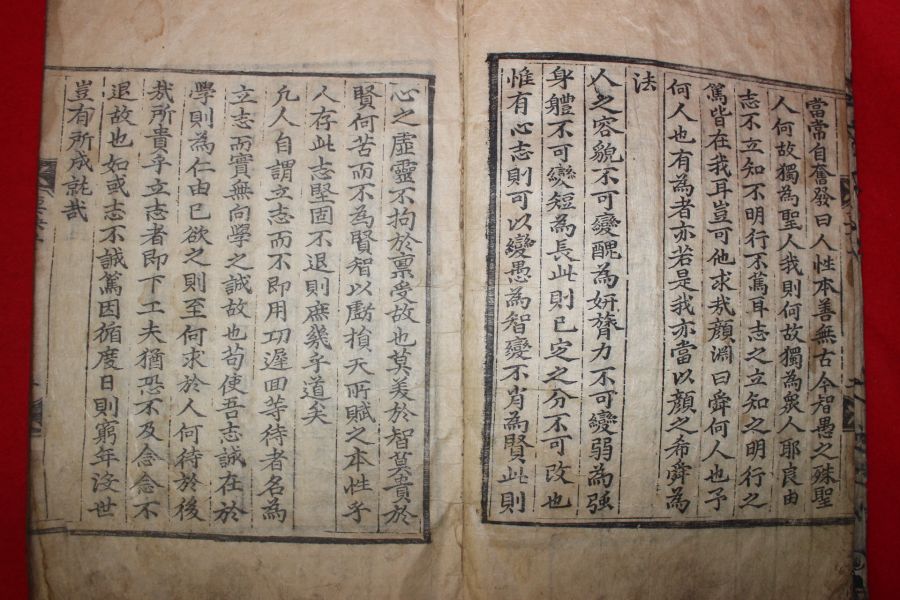 當常自奮發曰人性本善無古今智愚之殊聖
人何故獨為聖人我則何故獨為衆人耶良由
志不立知不明行不篤耳志之立知之明行之
篤皆在我耳豈可他求哉顔淵曰舜何人也予
何人也有為者亦若是我亦當以顔之希舜為
法
人之容貌不可變醜為姸膂力不可變弱為强
身軆不可變短為長此則已定之分不可改也
惟有心志則可以變愚為智變不肖為賢此則
心之虛靈不拘於禀受故也莫美於智莫貴於
賢何苦而不為賢智以虧損天所賦之本性乎
人存此志堅固不退則庶幾乎道矣
凡人自謂立志而不即用功遲回等待者名為
立志而實無向學之誠故也苟使吾志誠在於
學則為仁由己欲之則至何求於人何待於後
哉所貴乎立志者即下工夫猶恐不及念念不
退故也如或志不誠篤因循度日則窮年沒世
豈有所成就哉